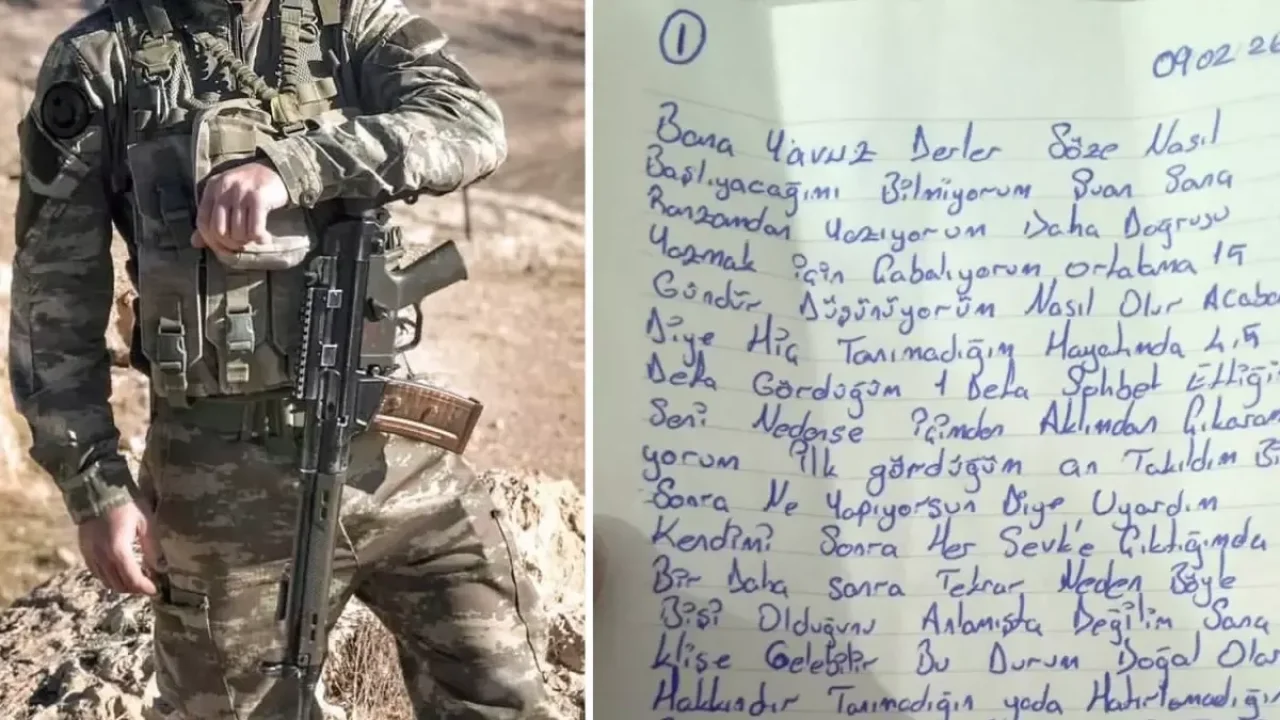 1
09.02.26
Bana Yavuz Derler Söze Nasıl
Başlıyacağımı Bilmiyorum Şuan Sana
Ranzamdan Yazıyorum Daha Doğrusu
Yazmak için Çabalıyorum ortalama 15
Gündür Düşünüyorum Nasıl Olur Acaba
Diye Hiç Tanımadığım Hayatımda 4,5
Defa Gördüğüm 1 Defa Sohbet Ettiğim
Seni Nedense içimden Aklımdan Çıkaram
yorum ilk gördüğüm an Takıldım Bi
Sonra Ne Yapıyorsun Diye Uyardım
Kendimi Sonra Her Sevk'e Çıktığımda
Bir Daha sonra Tekrar Neden Böyle
Bişi Olduğunu Anlamışta Değilim Sana
Klişe Gelebilir Bu Durum Doğal Olar
Hakkındır Tanımadığın yada Hatırlamadığın